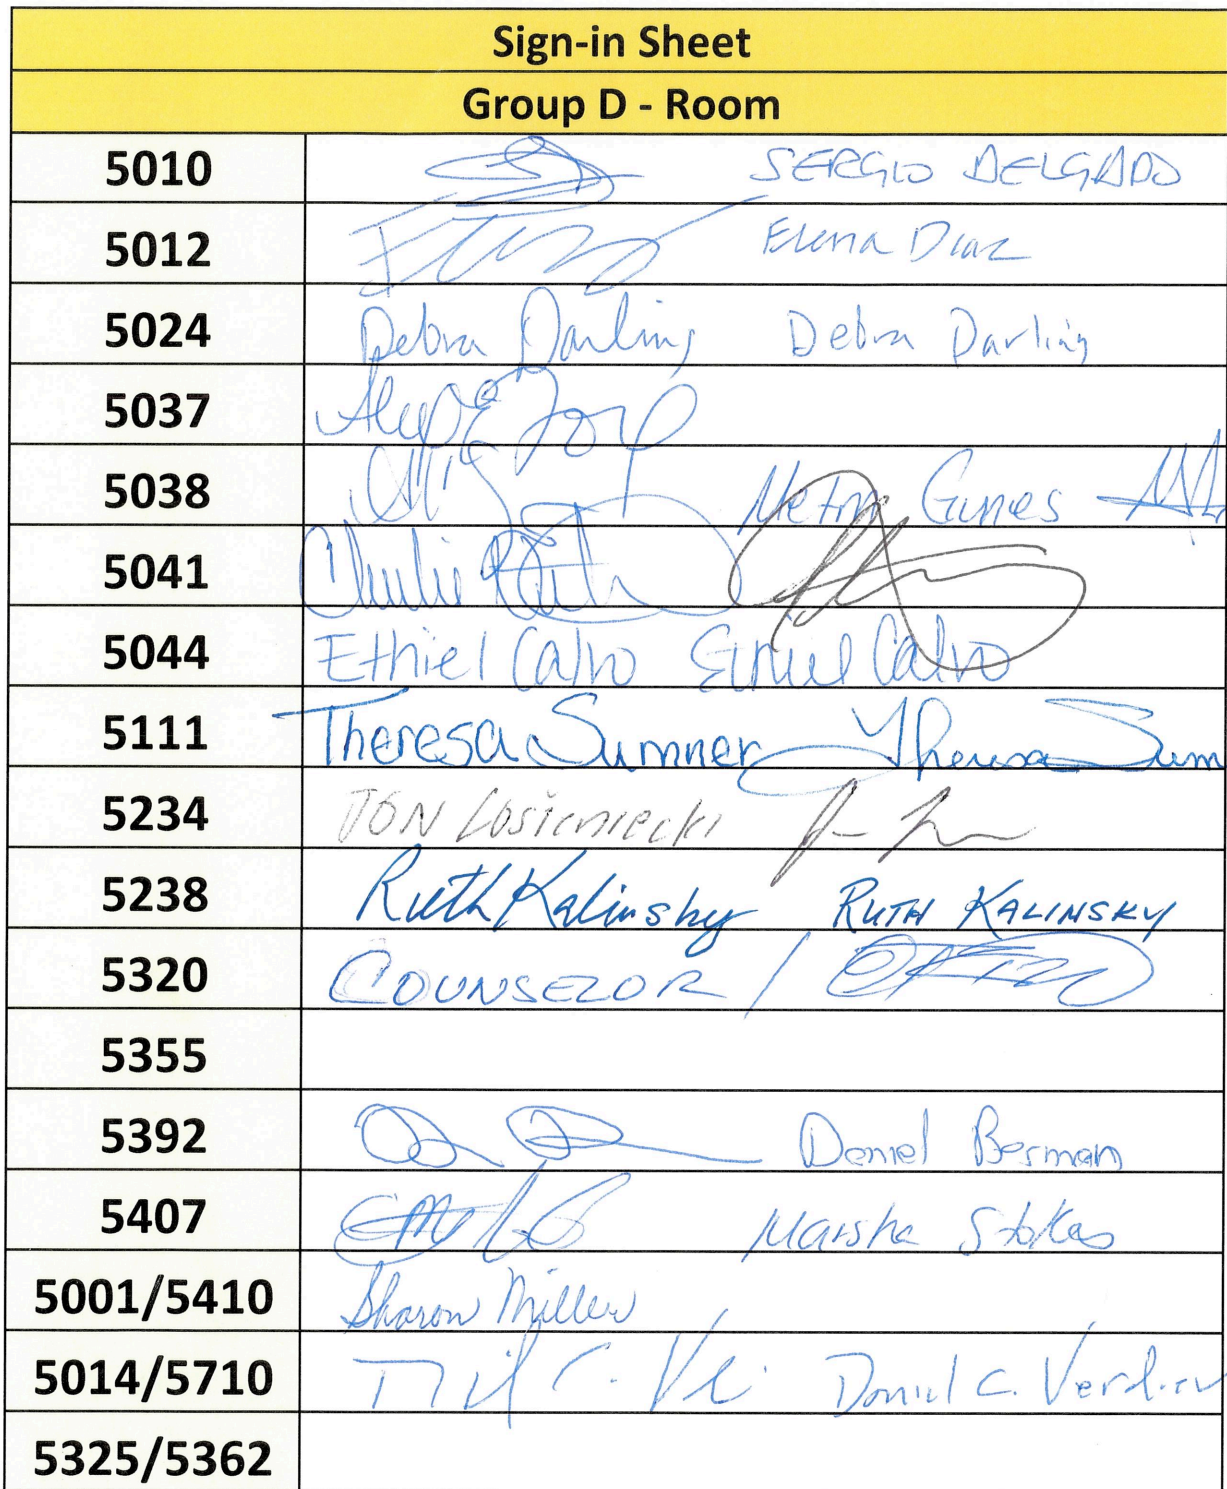 Sign-in Sheet
Group D - Room
5010 SERGIO DELGADO
5012 Elena Diaz
5024 Debra Darling Debra Darling
5037
5038 Metin Gunes
5041 Charlie
5044 Ethiel Calvo Ethiel Calvo
5111 Theresa Sumner Theresa Sum
5234 JON
5238 Ruth Kalinsky RUTH KALINSKY
5320 COUNSELOR /
5355
5392 Daniel Berman
5407 Marsha Stokes
5001/5410 Sharon Miller
5014/5710 Daniel C.
5325/5362